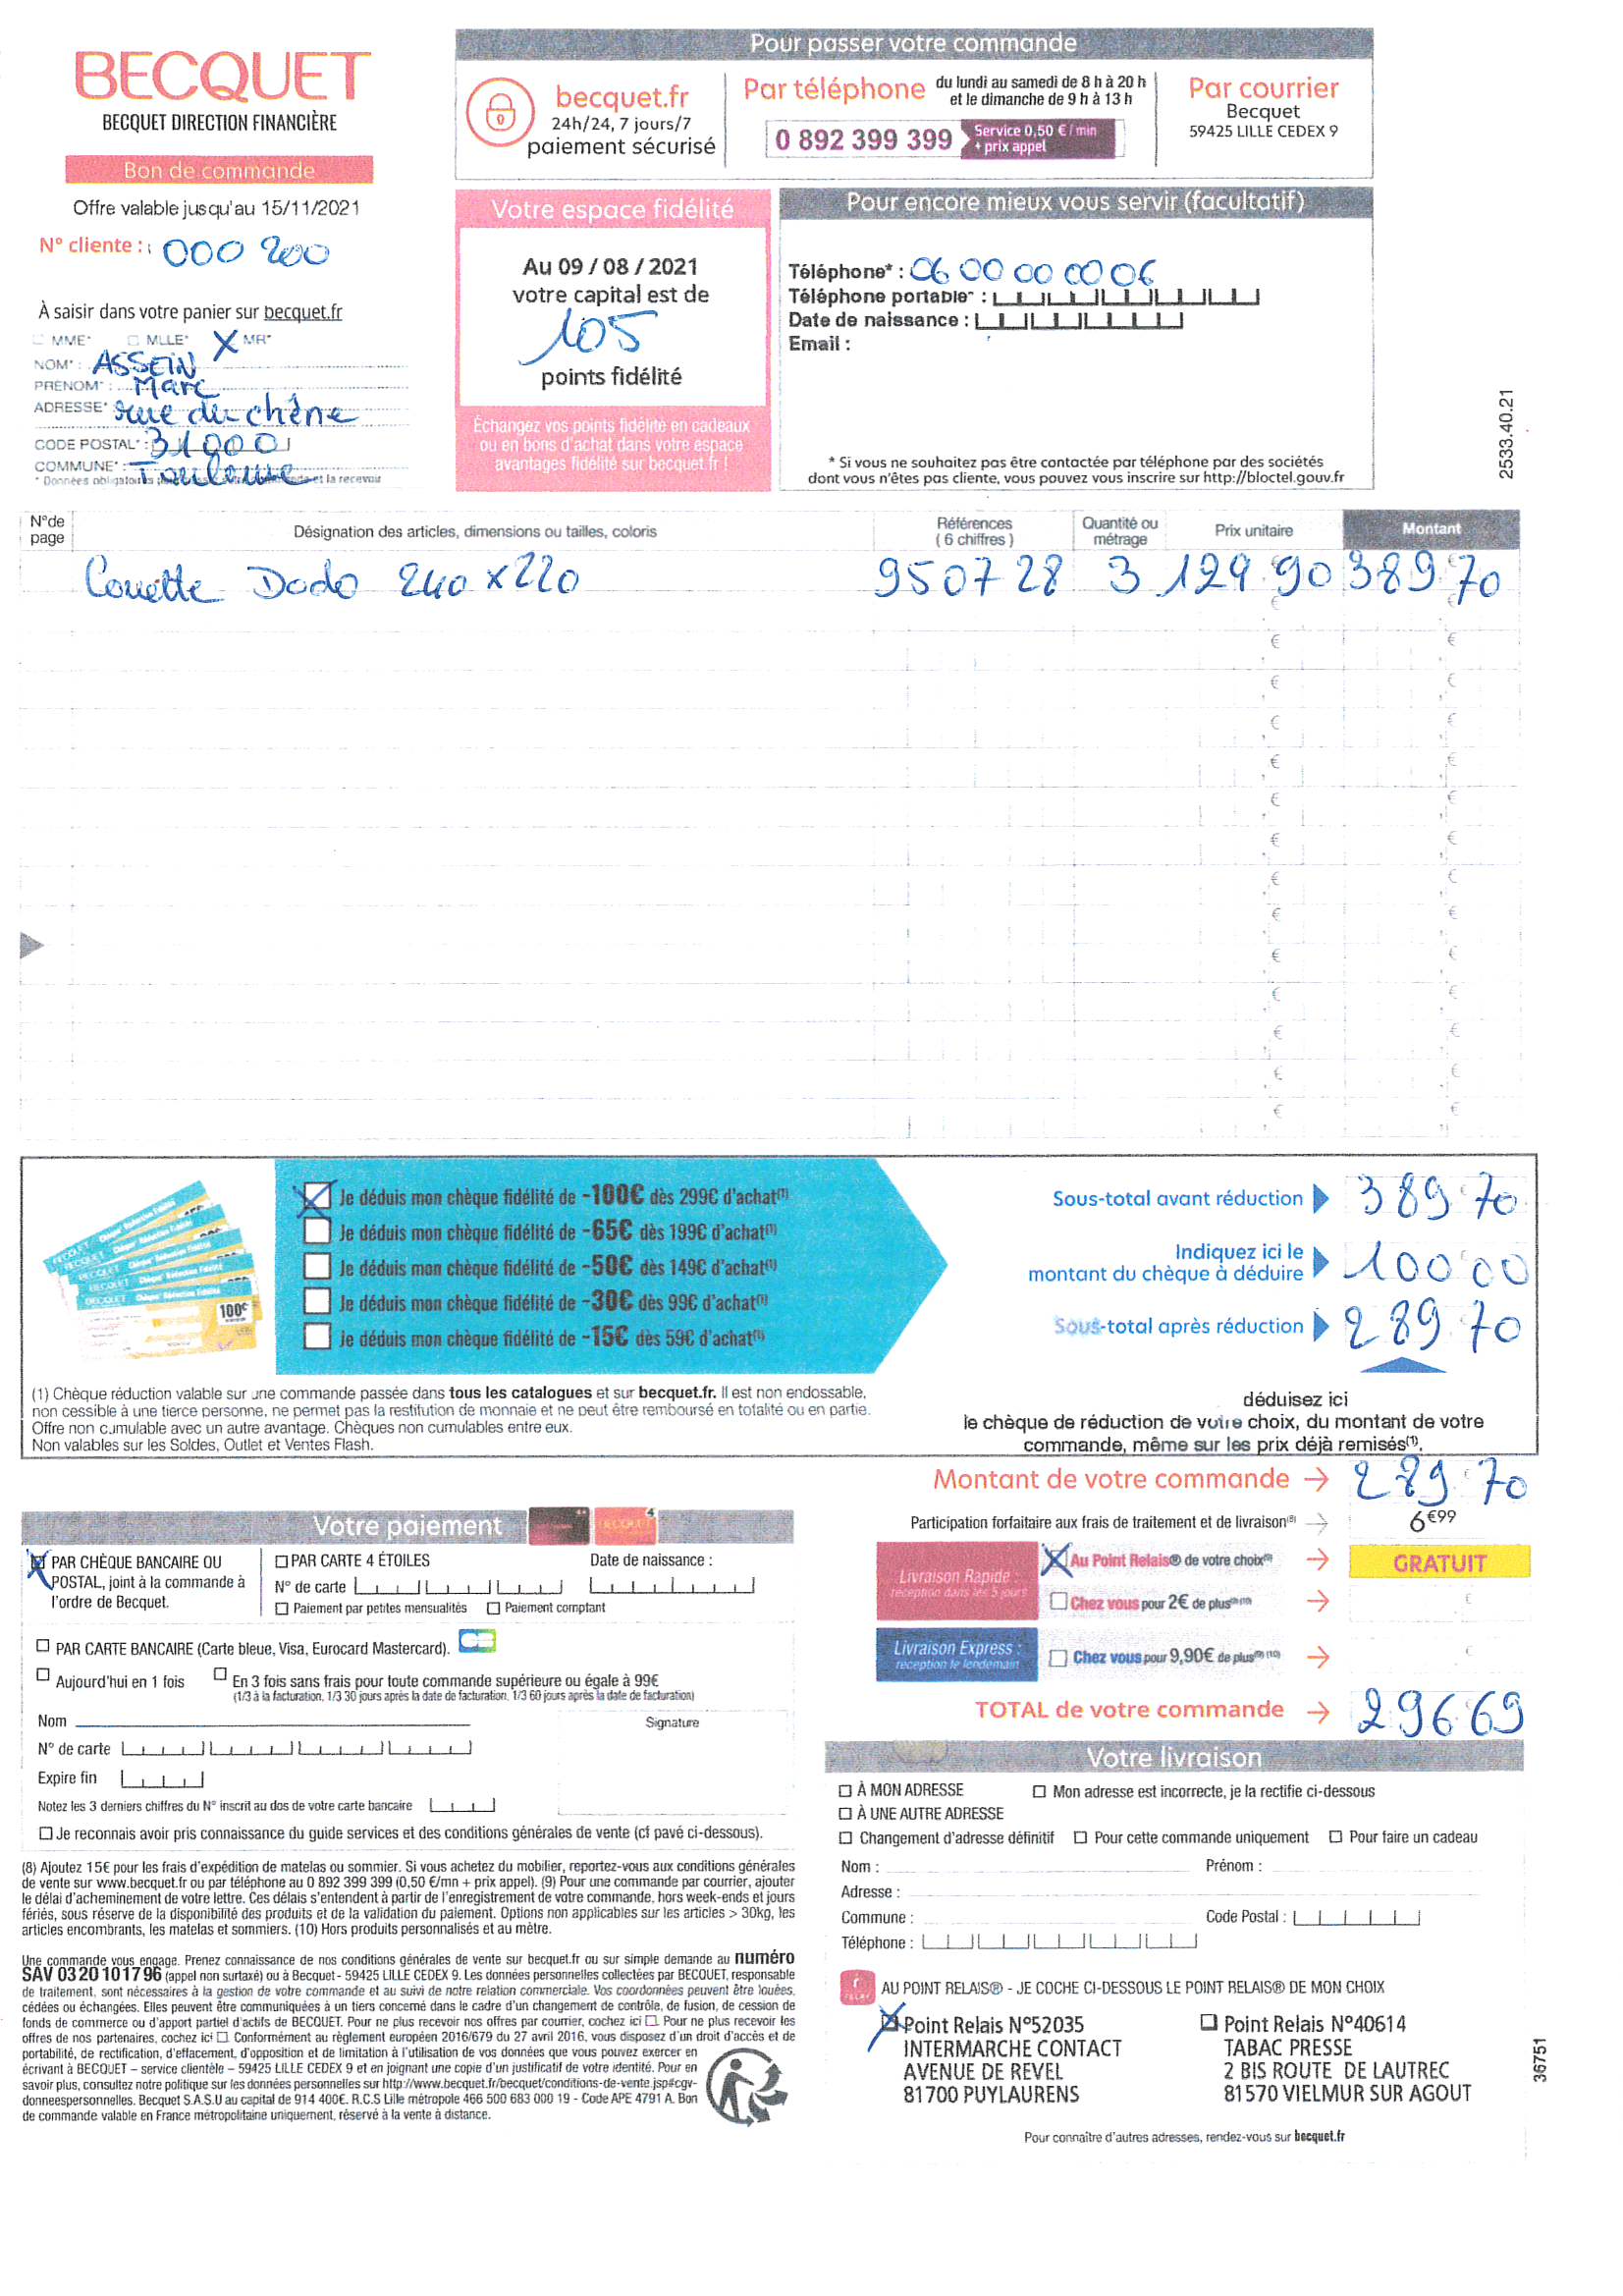 BECQUET
BECQUET DIRECTION FINANCIÈRE
Bon de commande
Offre valable jusqu'au 15/11/2021
N° cliente : 000 200
À saisir dans votre panier sur becquet.fr
MME* MLLE* X MR*
NOM* : ASSEIN
PRENOM* : Marc
ADRESSE* rue du chêne
CODE POSTAL* : 31000
COMMUNE* : Toulouse
Pour passer votre commande
becquet.fr
24h/24, 7 jours/7
paiement sécurisé
Par téléphone du lundi au samedi de 8 h à 20 h
et le dimanche de 9 h à 13 h
0 892 399 399 Service 0,50 € / min
+ prix appel
Par courrier
Becquet
59425 LILLE CEDEX 9
Votre espace fidélité
Au 09 / 08 / 2021
votre capital est de
105
points fidélité
Échangez vos points fidélité en cadeaux
ou en bons d'achat dans votre espace
avantages fidélité sur becquet.fr !
Pour encore mieux vous servir (facultatif)
Téléphone* : 06 00 00 00 06
Téléphone portable* :
Date de naissance :
Email :
* Si vous ne souhaitez pas être contactée par téléphone par des sociétés
dont vous n'êtes pas cliente, vous pouvez vous inscrire sur http://bloctel.gouv.fr
2533.40.21
N°de page Désignation des articles, dimensions ou tailles, coloris Références (6 chiffres) Quantité ou métrage Prix unitaire Montant
Couette Dodo 240 x 220 950728 3 129 90 389 70
Je déduis mon chèque fidélité de -100€ dès 299€ d'achat(1)
Je déduis mon chèque fidélité de -65€ dès 199€ d'achat(1)
Je déduis mon chèque fidélité de -50€ dès 149€ d'achat(1)
Je déduis mon chèque fidélité de -30€ dès 99€ d'achat(1)
Je déduis mon chèque fidélité de -15€ dès 59€ d'achat(1)
100€
Sous-total avant réduction 389 70
Indiquez ici le
montant du chèque à déduire 100 00
Sous-total après réduction 289 70
déduisez ici
le chèque de réduction de votre choix, du montant de votre
commande, même sur les prix déjà remisés(1).
(1) Chèque réduction valable sur une commande passée dans tous les catalogues et sur becquet.fr. Il est non endossable,
non cessible à une tierce personne, ne permet pas la restitution de monnaie et ne peut être remboursé en totalité ou en partie.
Offre non cumulable avec un autre avantage. Chèques non cumulables entre eux.
Non valables sur les Soldes, Outlet et Ventes Flash.
Montant de votre commande → 289 70
Participation forfaitaire aux frais de traitement et de livraison(8) → 6€99
Livraison Rapide :
réception dans les 5 jours
Au Point Relais® de votre choix(9) → GRATUIT
Chez vous pour 2€ de plus(9)(10) → €
Livraison Express :
réception le lendemain
Chez vous pour 9,90€ de plus(9)(10) → €
TOTAL de votre commande → 296 69
Votre paiement
PAR CHÈQUE BANCAIRE OU
POSTAL, joint à la commande à
l'ordre de Becquet.
PAR CARTE 4 ÉTOILES Date de naissance :
N° de carte
Paiement par petites mensualités Paiement comptant
PAR CARTE BANCAIRE (Carte bleue, Visa, Eurocard Mastercard).
Aujourd'hui en 1 fois En 3 fois sans frais pour toute commande supérieure ou égale à 99€
(1/3 à la facturation, 1/3 30 jours après la date de facturation, 1/3 60 jours après la date de facturation)
Nom Signature
N° de carte
Expire fin
Notez les 3 derniers chiffres du N° inscrit au dos de votre carte bancaire
Je reconnais avoir pris connaissance du guide services et des conditions générales de vente (cf pavé ci-dessous).
(8) Ajoutez 15€ pour les frais d'expédition de matelas ou sommier. Si vous achetez du mobilier, reportez-vous aux conditions générales
de vente sur www.becquet.fr ou par téléphone au 0 892 399 399 (0,50 €/mn + prix appel). (9) Pour une commande par courrier, ajouter
le délai d'acheminement de votre lettre. Ces délais s'entendent à partir de l'enregistrement de votre commande, hors week-ends et jours
fériés, sous réserve de la disponibilité des produits et de la validation du paiement. Options non applicables sur les articles > 30kg, les
articles encombrants, les matelas et sommiers. (10) Hors produits personnalisés et au mètre.
Une commande vous engage. Prenez connaissance de nos conditions générales de vente sur becquet.fr ou sur simple demande au numéro
SAV 03 20 10 17 96 (appel non surtaxé) ou à Becquet - 59425 LILLE CEDEX 9. Les données personnelles collectées par BECQUET, responsable
de traitement, sont nécessaires à la gestion de votre commande et au suivi de notre relation commerciale. Vos coordonnées peuvent être louées,
cédées ou échangées. Elles peuvent être communiquées à un tiers concerné dans le cadre d'un changement de contrôle, de fusion, de cession de
fonds de commerce ou d'apport partiel d'actifs de BECQUET. Pour ne plus recevoir nos offres par courrier, cochez ici. Pour ne plus recevoir les
offres de nos partenaires, cochez ici. Conformément au règlement européen 2016/679 du 27 avril 2016, vous disposez d'un droit d'accès et de
portabilité, de rectification, d'effacement, d'opposition et de limitation à l'utilisation de vos données que vous pouvez exercer en
écrivant à BECQUET – service clientèle – 59425 LILLE CEDEX 9 et en joignant une copie d'un justificatif de votre identité. Pour en
savoir plus, consultez notre politique sur les données personnelles sur http://www.becquet.fr/becquet/conditions-de-vente.jsp#cgv-
donneespersonnelles. Becquet S.A.S.U au capital de 914 400€. R.C.S Lille métropole 466 500 683 000 19 - Code APE 4791 A. Bon
de commande valable en France métropolitaine uniquement, réservé à la vente à distance.
Votre livraison
À MON ADRESSE Mon adresse est incorrecte, je la rectifie ci-dessous
À UNE AUTRE ADRESSE
Changement d'adresse définitif Pour cette commande uniquement Pour faire un cadeau
Nom : Prénom :
Adresse :
Commune : Code Postal :
Téléphone :
AU POINT RELAIS® - JE COCHE CI-DESSOUS LE POINT RELAIS® DE MON CHOIX
Point Relais N°52035
INTERMARCHE CONTACT
AVENUE DE REVEL
81700 PUYLAURENS
Point Relais N°40614
TABAC PRESSE
2 BIS ROUTE DE LAUTREC
81570 VIELMUR SUR AGOUT
Pour connaître d'autres adresses, rendez-vous sur becquet.fr
36751